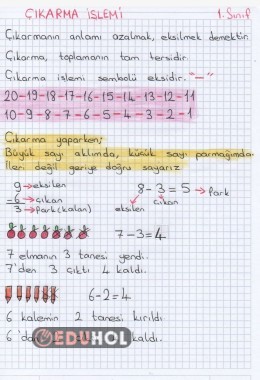 ÇIKARMA İŞLEMİ
1. Sınıf
Çıkarmanın anlamı azalmak, eksilmek demektir.
Çıkarma, toplamanın tam tersidir.
Çıkarma işlemi sembolü eksidir. "—"
20-19-18-17-16-15-14-13-12-11
10-9-8-7-6-5-4-3-2-1
Çıkarma yaparken;
Büyük sayı aklımda, küçük sayı parmağımda.
İleri değil geriye doğru sayarız.
9→eksilen
-6→çıkan
3→fark(kalan)
8-3=5→fark
eksilen çıkan
7-3=4
7 elmanın 3 tanesi yendi.
7'den 3 çıktı 4 kaldı.
6-2=4
6 kalemin 2 tanesi kırıldı
6 'da kaldı.
EDUHOL